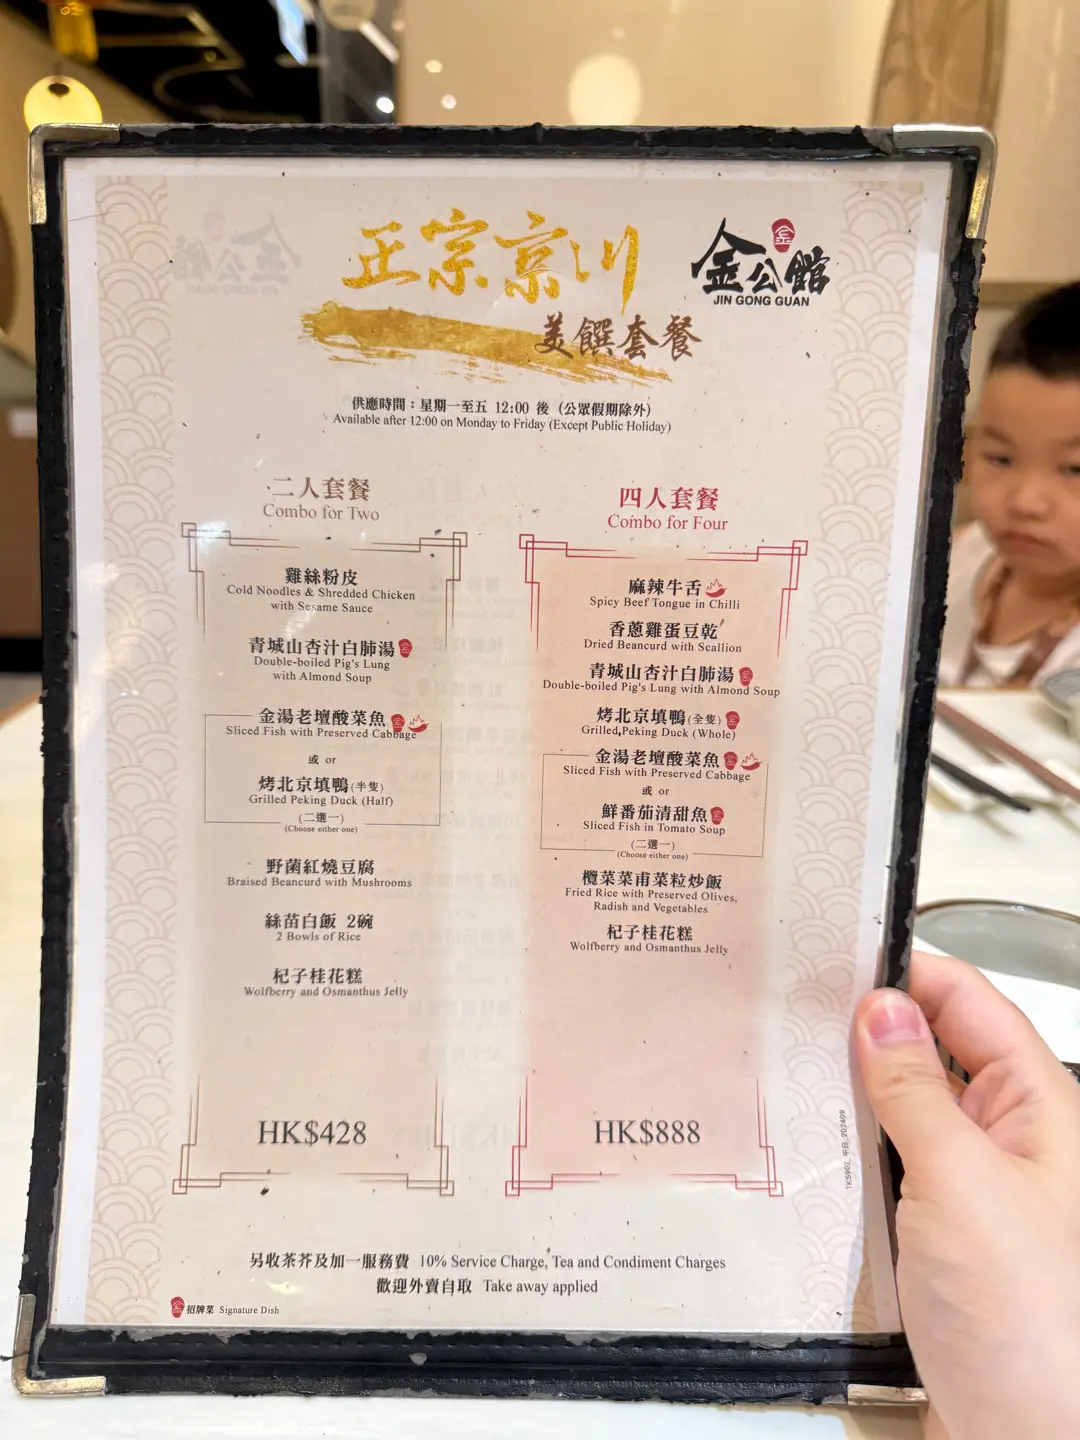 正宗京川
美饌套餐
金公館
JIN GONG GUAN
供應時間：星期一至五 12:00 後 (公眾假期除外)
Available after 12:00 on Monday to Friday (Except Public Holiday)
二人套餐
Combo for Two
雞絲粉皮
Cold Noodles & Shredded Chicken
with Sesame Sauce
青城山杏汁白肺湯
Double-boiled Pig's Lung
with Almond Soup
金湯老壇酸菜魚
Sliced Fish with Preserved Cabbage
或 or
烤北京填鴨(半隻)
Grilled Peking Duck (Half)
(二選一)
(Choose either one)
野菌紅燒豆腐
Braised Beancurd with Mushrooms
絲苗白飯 2碗
2 Bowls of Rice
杞子桂花糕
Wolfberry and Osmanthus Jelly
HK$428
四人套餐
Combo for Four
麻辣牛舌
Spicy Beef Tongue in Chilli
香蔥雞蛋豆乾
Dried Beancurd with Scallion
青城山杏汁白肺湯
Double-boiled Pig's Lung with Almond Soup
烤北京填鴨(全隻)
Grilled Peking Duck (Whole)
金湯老壇酸菜魚
Sliced Fish with Preserved Cabbage
或 or
鮮番茄清甜魚
Sliced Fish in Tomato Soup
(二選一)
(Choose either one)
欖菜菜甫菜粒炒飯
Fried Rice with Preserved Olives,
Radish and Vegetables
杞子桂花糕
Wolfberry and Osmanthus Jelly
HK$888
另收茶芥及加一服務費 10% Service Charge, Tea and Condiment Charges
歡迎外賣自取 Take away applied
招牌菜 Signature Dish